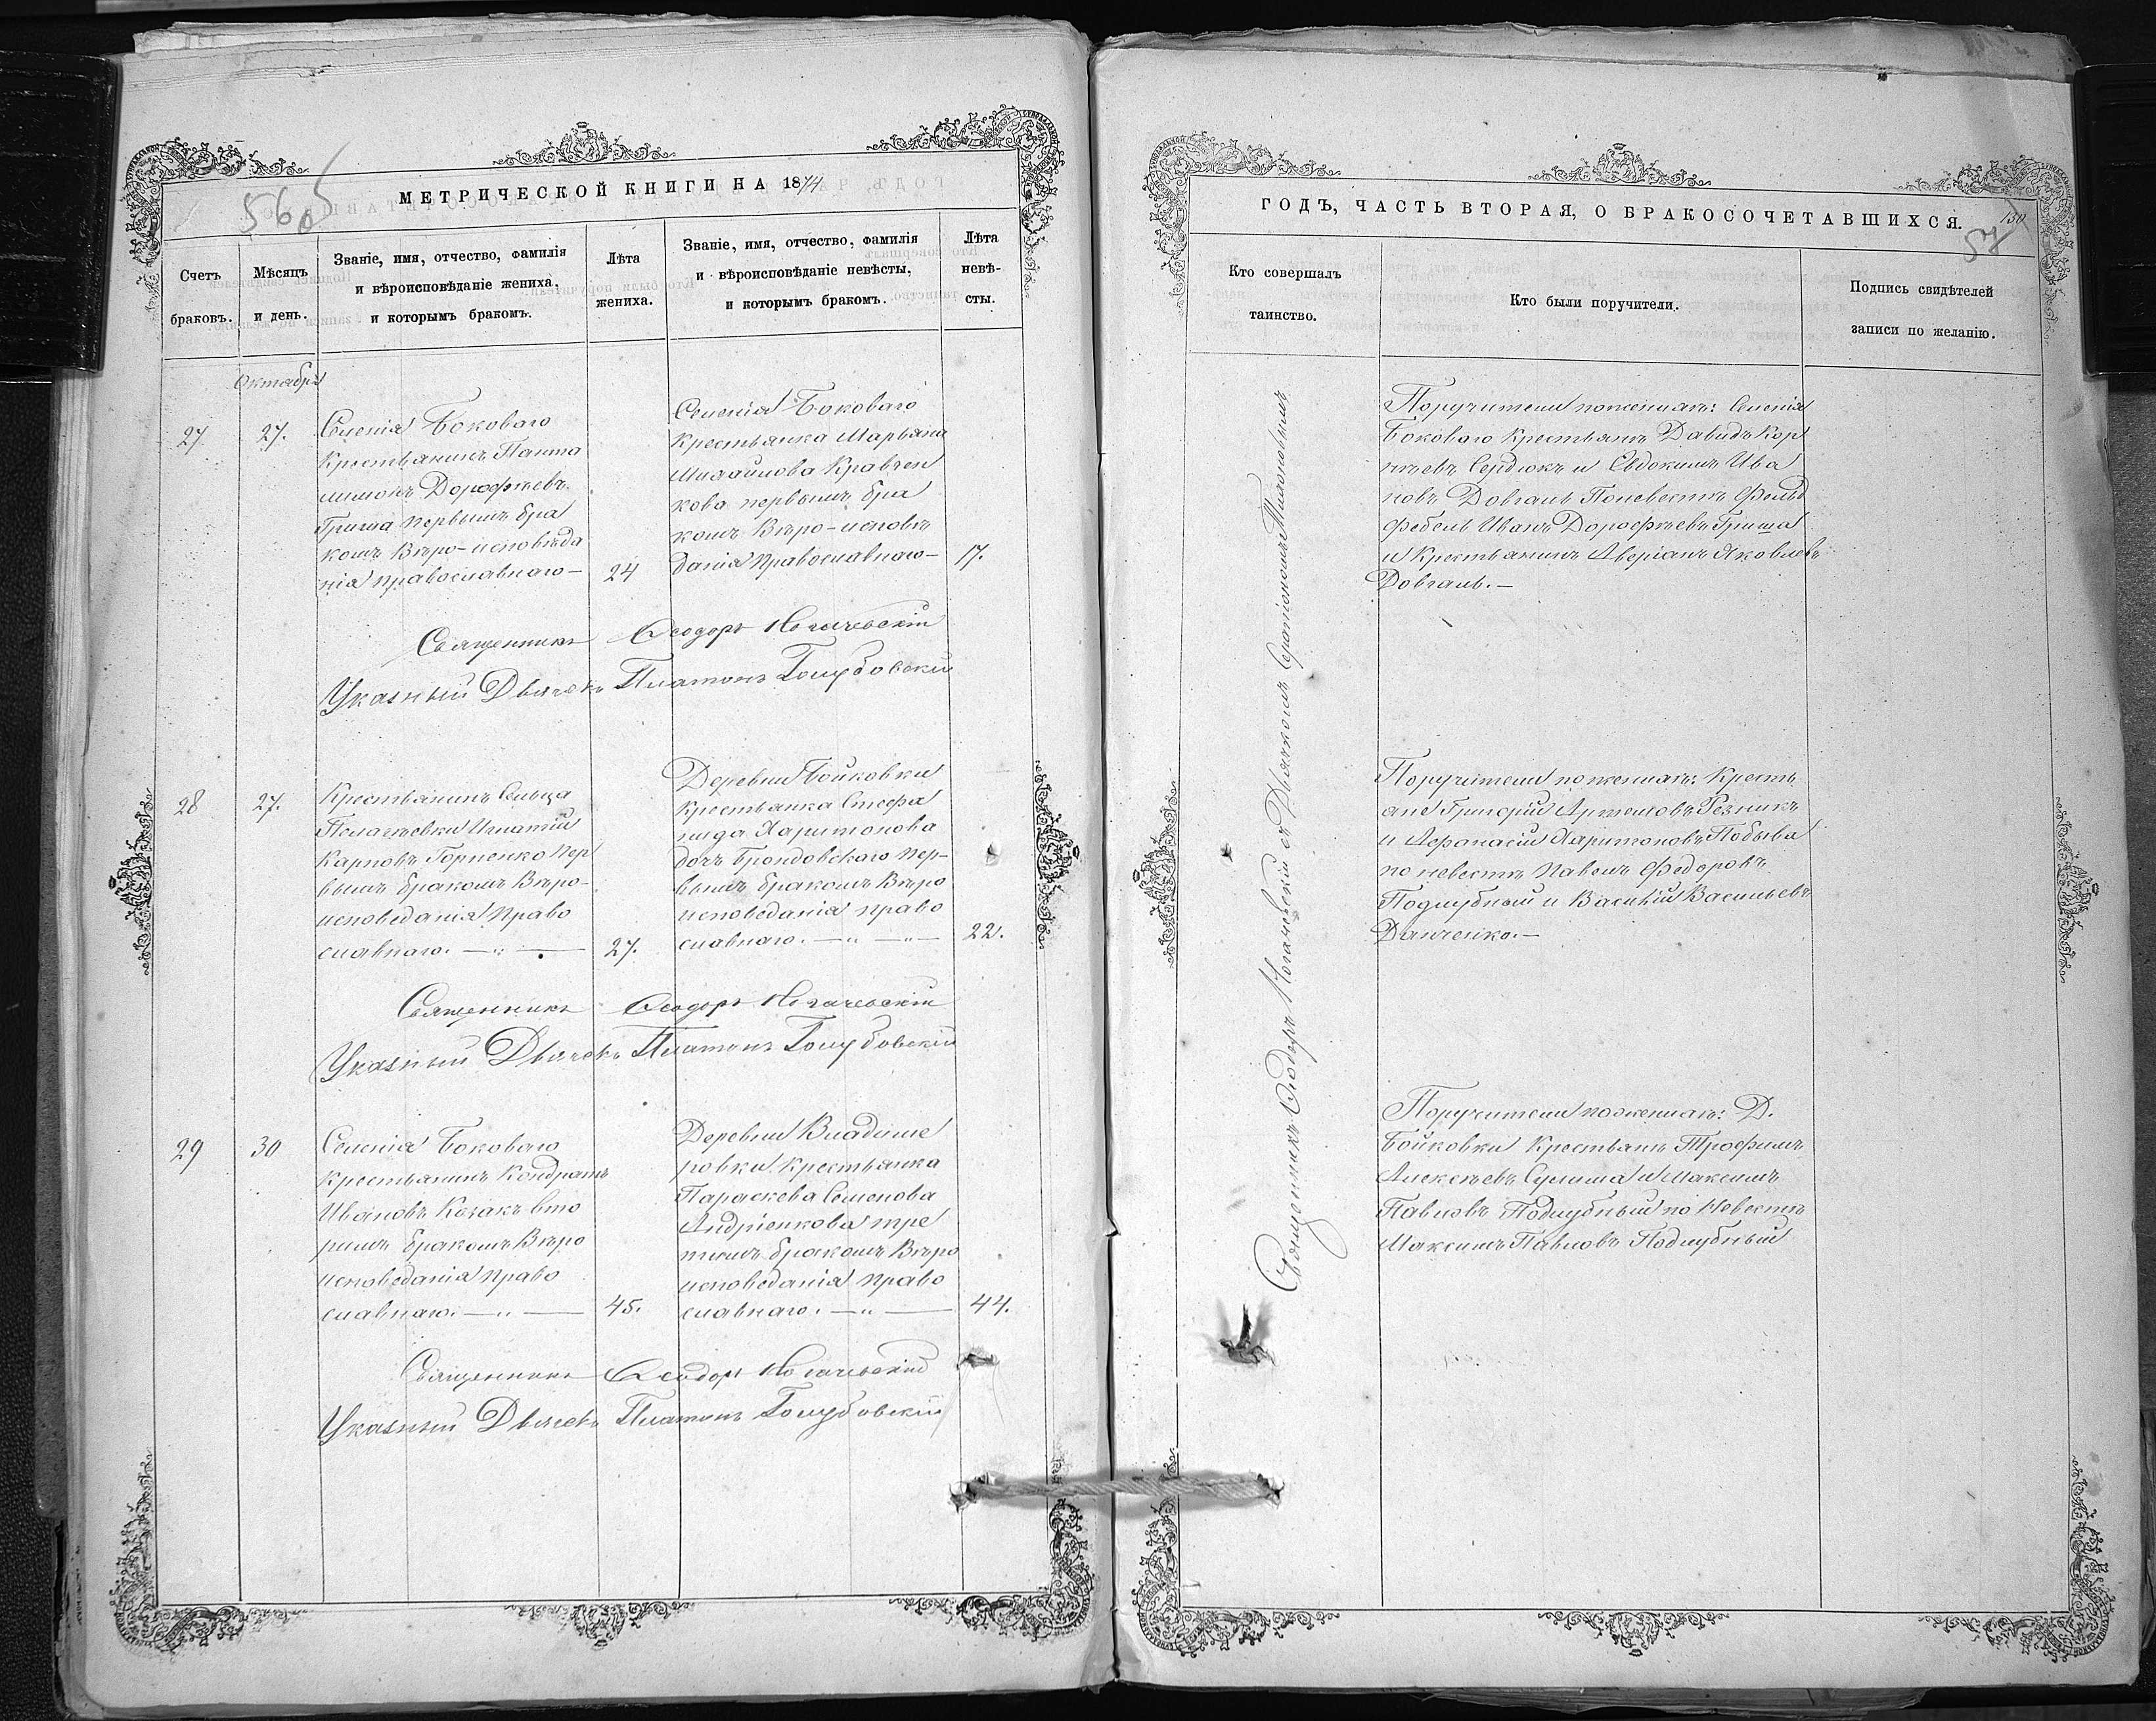 МЕТРИЧЕСКОЙ КНИГИ НА 1874
Счетъ браковъ.
Мѣсяцъ и день.
Званіе, имя, отчество, фамилія
и вѣроисповѣданіе жениха,
и которымъ бракомъ.
Лѣта жениха.
Званіе, имя, отчество, фамилія
и вѣроисповѣданіе невѣсты,
и которымъ бракомъ.
Лѣта невѣ-
сты.
Октября
27
27.
Селенія Боковаго
Крестьянинъ Панта
лимонъ Дорофѣевъ
Гриша первымъ бра
комъ Вѣро-исповѣда
нія православнаго —
24
Селенія Боковаго
Крестьянка Марьяна
Михайлова Кравчен
кова первымъ бра
комъ Вѣро-исповѣ
данія православнаго —
17.
Священникъ Ѳеодоръ Ногачевскій
Указный Дьячокъ Платонъ Голубовскій
28
27.
Крестьянинъ Сельца
Пелагѣевки Игнатій
Карповъ Горпенко пер
вымъ бракомъ Вѣро-
исповеданія Право
славнаго. — „ —
27.
Деревни Бойковки
крестьянка Стефа
нида Харитонова
дочь Брондовскаго пер-
вымъ бракомъ Вѣро
исповеданія право
славнаго. — „ — „ —
22.
Священникъ Ѳеодоръ Ногачевскій
Указный Дьячокъ Платонъ Голубовскій
29
30
Селенія Боковаго
крестьянинъ Кондратъ
Ивановъ Козакъ вто
римъ бракомъ Вѣро
исповеданія право
славнаго. — „ —
45.
Деревни Владиме
ровки крестьянка
Параскева Семенова
Андріенкова тре
тимъ бракомъ Вѣро
исповеданія право
славнаго. — „ —
44.
Священникъ Ѳеодоръ Ногачевскій
Указный Дьячокъ Платонъ Голубовскій
ГОДЪ, ЧАСТЬ ВТОРАЯ, О БРАКОСОЧЕТАВШИХСЯ.
57
Кто совершалъ
таинство.
Кто были поручители.
Подпись свидѣтелей
записи по желанію.
Священникъ Ѳеодоръ Ногачевскій съ Дьячкомъ
Поручители по женихѣ: Селенія
Боковаго Крестьянъ Давидъ Кор
нѣевъ Сердюкъ и Евдокимъ Ива
новъ Довгаль По невестѣ Фельд
фебель Иванъ Дорофѣевъ Гриша
и Крестьянинъ Аверіанъ Яковлевъ
Довгаль. —
Поручители по женихѣ: Кресть
яне Григорій Артемовъ Резникъ
и Афанасій Харитоновъ Побыва
по невестѣ Павелъ Федоровъ
Подлубный и Василій Васильевъ
Данченко. —
Поручители по женихѣ: Д.
Бойковки Крестьянъ Трофимъ
Алексѣевъ Сулима и Максимъ
Павловъ Подлубный по Невестѣ
Максимъ Павловъ Подлубный